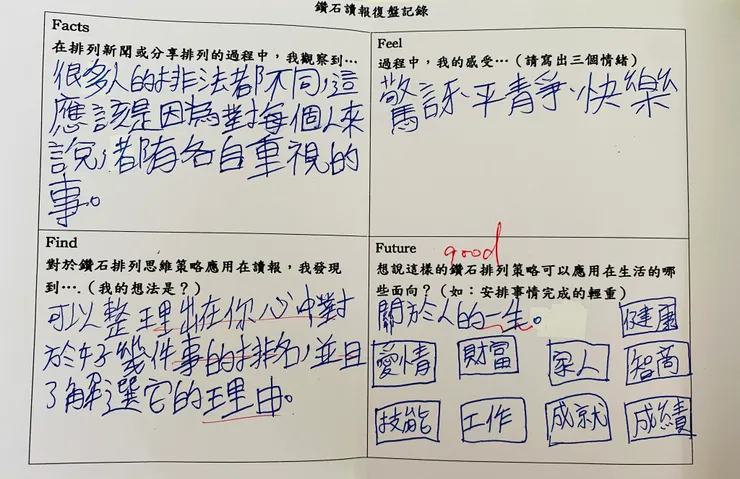 鑽石讀報復盤記錄
Facts
在排列新聞或分享排列的過程中，我觀察到…
很多人的排法都不同，這
應該是因為對每個人來
說，都有各自重視的
事。
Feel
過程中，我的感受…（請寫出三個情緒）
驚訝、平青爭、快樂
Find
對於鑽石排列思維策略應用在讀報，我發現
到….（我的想法是？）
可以整理出在你心中對
於好幾件事的排名，並且
了解選它的理由。
good
Future
想說這樣的鑽石排列策略可以應用在生活的哪
些面向？（如：安排事情完成的輕重）
關於人的一生。
健康
愛情 財富 家人 智商
技能 工作 成就 成績